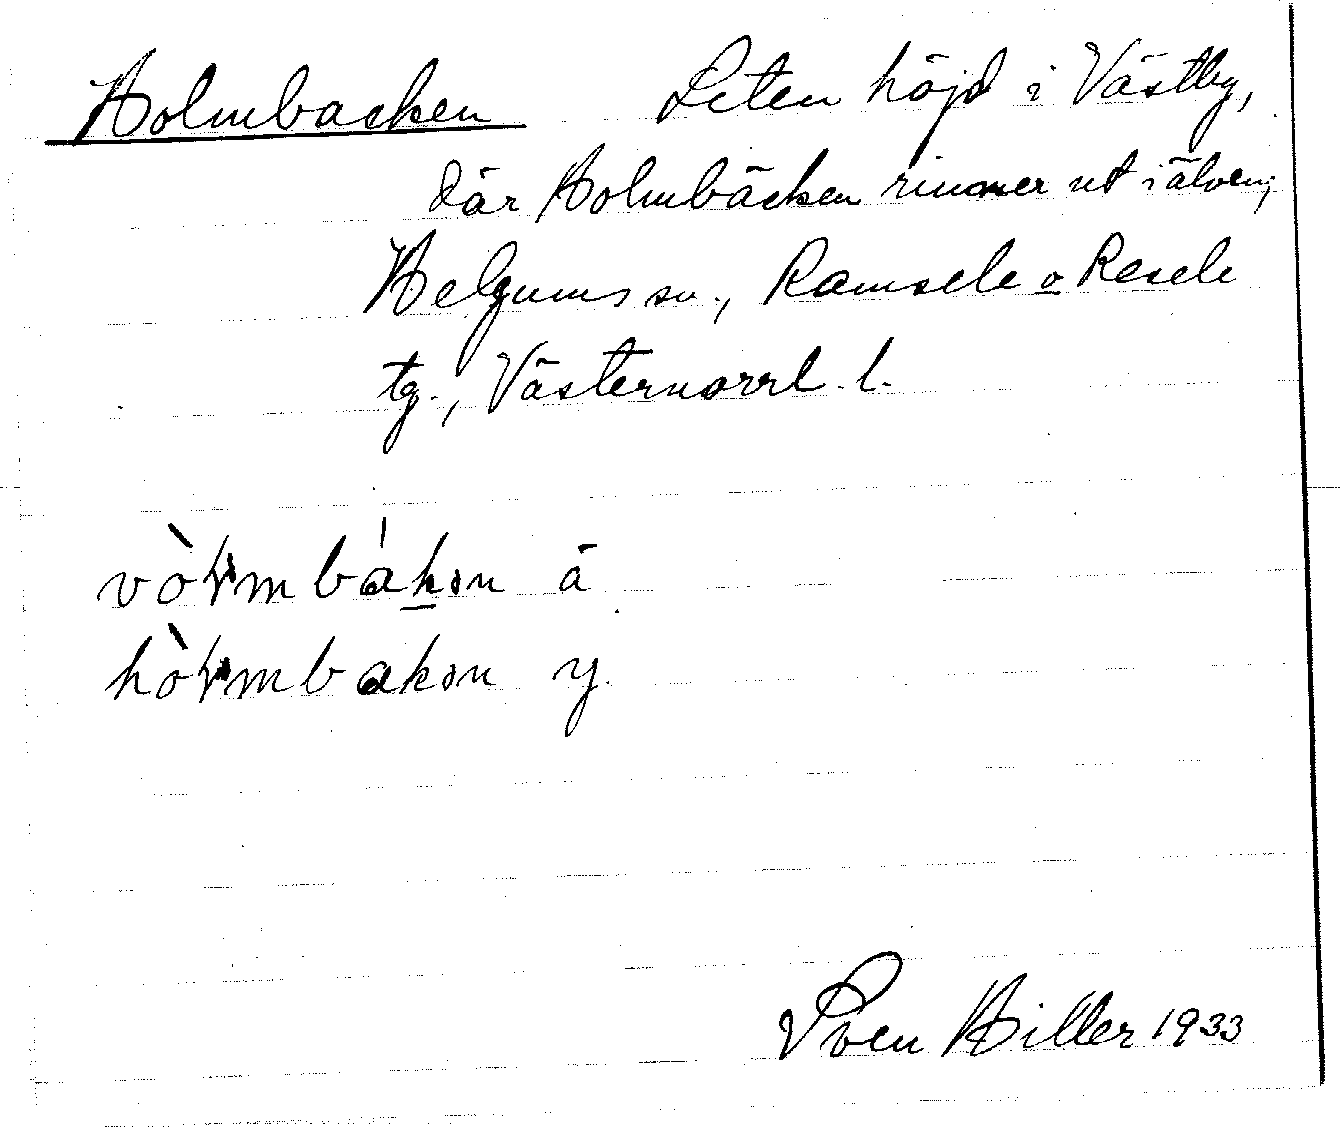 Holmbacken Liten höjd i Västby,
där Holmbäcken rinner ut i älven;
Helgums sn., Ramsele o Resele
tg., Västernorrl. l.
vòɽmbákən ä
hòɽmbakən y.
Sven Hiller 1933